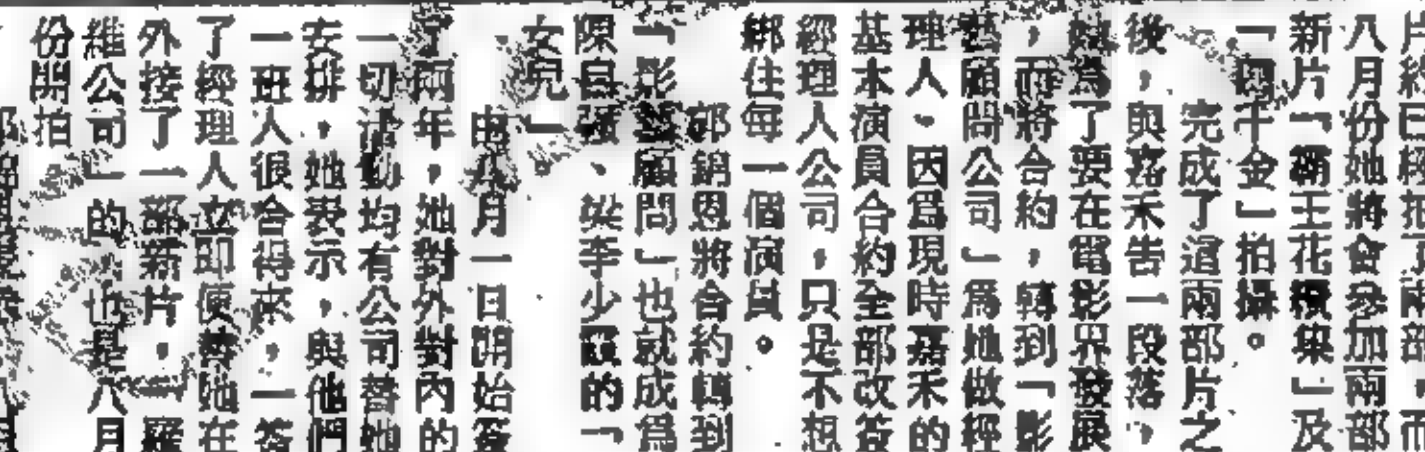 片經已經拍了兩部，而
八月份她將會參加兩部
新片「霸王花積集」及
「千金」拍攝。
完成了這兩部片之
後，與嘉禾告一段落，
她為了要在電影界發展
，而將合約，轉到「影
藝顧問公司」為她做經
理人、因為現時嘉禾的
基本演員合約全部改簽
經理人公司，只是不想
綁住每一個演員。
鄧錦恩將合約轉到
「影藝顧問」也就成為
陳自強、梁李少霞的「
女兒」。
由八月一日開始簽
了兩年，她對外對內的
一切活動均有公司替她
安排，她表示，與他們
一班人很合得來，一簽
了經理人立即便替她在
外接了一部新片，「羅
維公司」的，也是八月
份開拍。